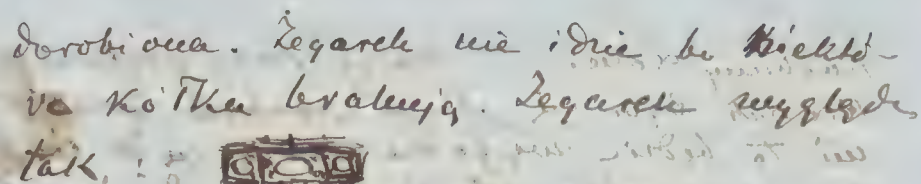 dorobiona. Zegarek nie idzie bo niektó-
re kółka brakują. Zegarek wygląda
tak :